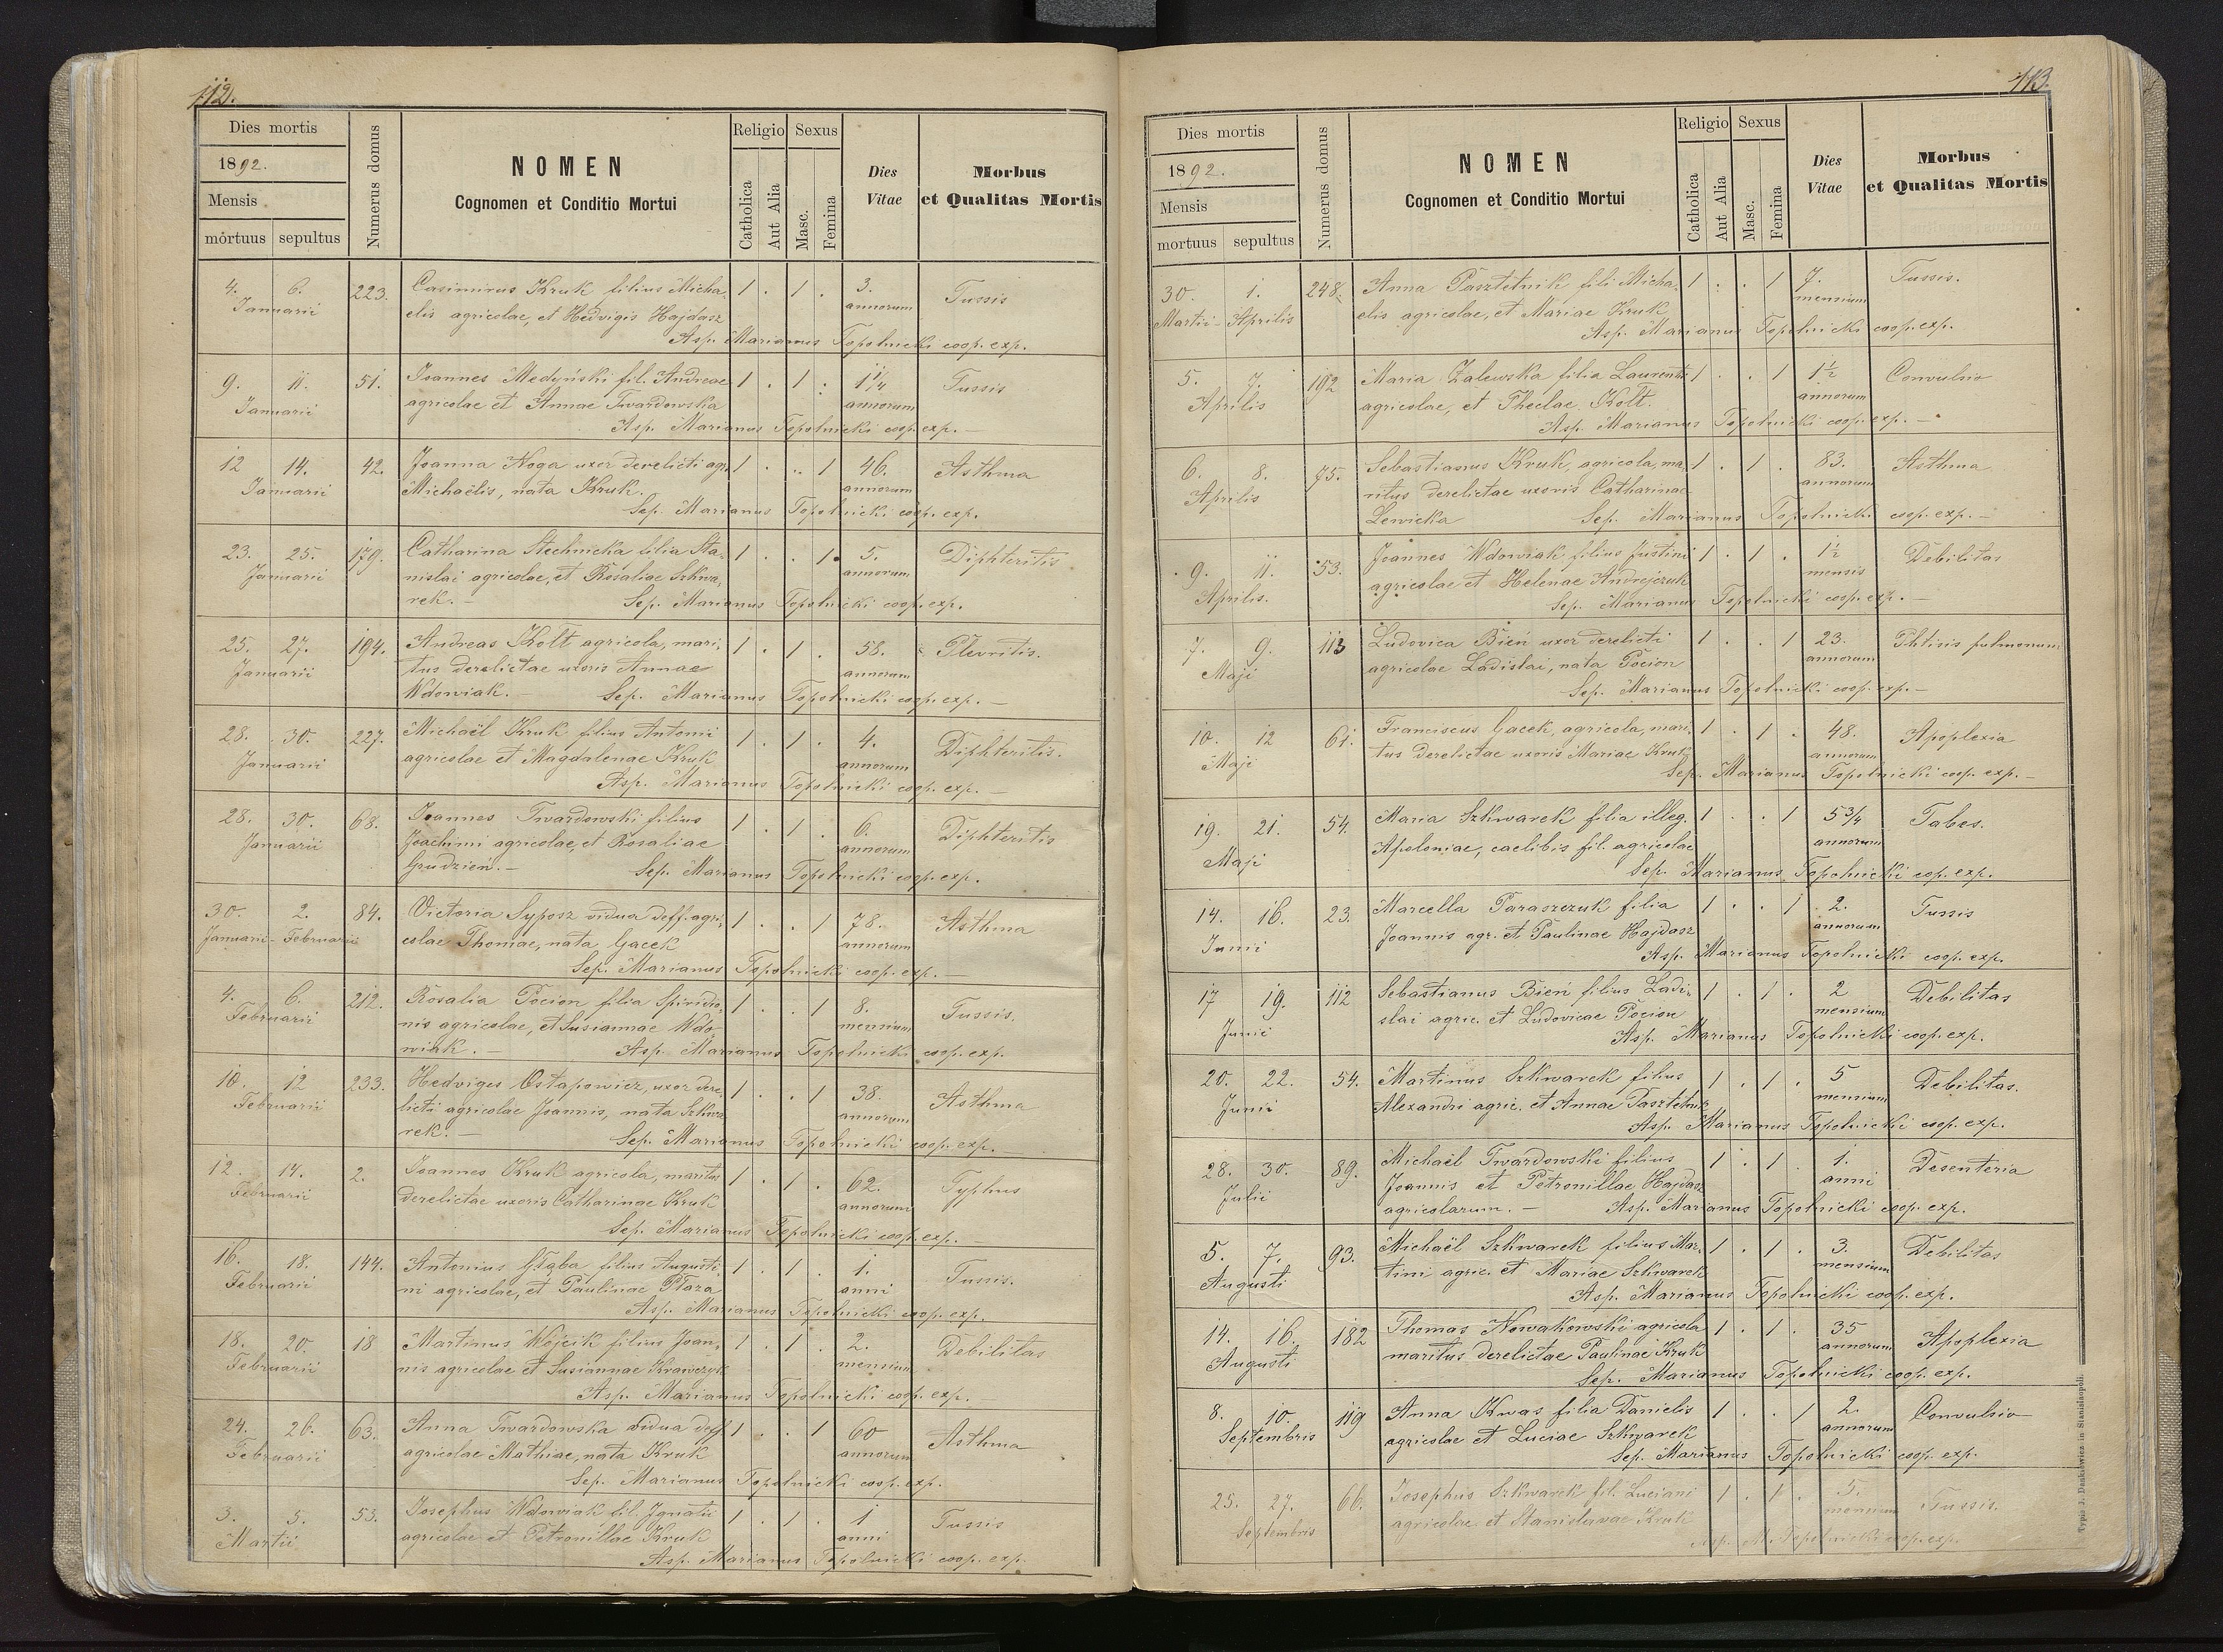 112.
Dies mortis
1892.
Mensis
mortuus sepultus
Numerus domus
NOMEN
Cognomen et Conditio Mortui
Religio
Catholica
Aut Alia
Sexus
Masc.
Femina
Dies
Vitae
Morbus
et Qualitas Mortis
4. 6. 223. Casimirus Kruk filius Micha- 1 . 1 . 3. Tussis
Januarii elis agricolae, et Hedvigis Hajdasz annorum
Asp. Marianus Topolnicki coop. exp.
9. 11. 51. Joannes Medyński fil. Andreae 1 . 1 . 1 1/4 Tussis
Januarii agricolae et Annae Twardowska annorum
Asp. Marianus Topolnicki coop. exp. –
12 14. 42. Joanna Noga uxor derelicti agr. 1 . . 1 46. Asthma
Januarii Michaëlis, nata Kruk. annorum
Sep. Marianus Topolnicki coop. exp.
23. 25. 179. Catharina Stechnicka filia Sta- 1 . . 1 5. Diphteritis
Januarii nislai agricolae, et Rosaliae Szkwa- annorum
rek. – Sep. Marianus Topolnicki coop. exp.
25. 27. 194. Andreas Kołt agricola, mari- 1 . 1 . 58. Plevritis.
Januarii tus derelictae uxoris Annae annorum
Wdowiak. – Sep. Marianus Topolnicki coop. exp. –
28. 30. 227. Michaël Kruk filius Antonii 1 . 1 . 4. Diphteritis.
Januarii agricolae et Magdalenae Kruk annorum
Asp. Marianus Topolnicki coop. exp. –
28. 30. 68. Joannes Twardowski filius 1 . 1 . 6. Diphteritis
Januarii Joachimi agricolae, et Rosaliae annorum
Grudzień. – Sep. Marianus Topolnicki coop. exp.
30. 2. 84. Victoria Syposz vidua deff. agri- 1 . . 1 78. Asthma
Januarii - Februarii colae Thomae, nata Gacek annorum
Sep. Marianus Topolnicki coop. exp.
4. 6. 212. Rosalia Pocion filia Spirido- 1 . . 1 8. Tussis.
Februarii nis agricolae, et Susiannae Wdo- mensium
wiak. – Asp. Marianus Topolnicki coop. exp.
10. 12 233. Hedviges Ostapowicz, uxor dere- 1 . . 1 38. Asthma
Februarii licti agricolae Joannis, nata Szkwa- annorum
rek. – Sep. Marianus Topolnicki coop. exp.
12. 14. 2. Joannes Kruk agricola, maritus 1 . 1 . 62. Typhus
Februarii derelictae uxoris Catharinae Kruk annorum
Sep. Marianus Topolnicki coop. exp. –
16. 18. 144. Antonius Głąba filius Augusti- 1 . 1 . 1. Tussis.
Februarii ni agricolae, et Paulinae Płaza anni
Asp. Marianus Topolnicki coop. exp.
18. 20. 18 Martinus Wójcik filius Joan- 1 . 1 . 2. Debilitas
Februarii nis agricolae et Susiannae Krawczyk mensium
Asp. Marianus Topolnicki coop. exp. –
24. 26. 63. Anna Twardowska vidua deff. 1 . . 1 60 Asthma
Februarii agricolae Mathiae, nata Kruk annorum
Sep. Marianus Topolnicki coop. exp.
3. 5. 53. Josephus Wdowiak fil. Ignatii 1 . 1 . 1 Tussis
Martii agricolae et Petronillae Kruk anni
Asp. Marianus Topolnicki coop. exp.
113.
Dies mortis
1892.
Mensis
mortuus sepultus
Numerus domus
NOMEN
Cognomen et Conditio Mortui
Religio
Catholica
Aut Alia
Sexus
Masc.
Femina
Dies
Vitae
Morbus
et Qualitas Mortis
30. 1. 248. Anna Pasztetnik fili Micha- 1 . . 1 7. Tussis.
Martii - Aprilis elis agricolae, et Mariae Kruk mensium
Asp. Marianus Topolnicki coop. exp.
5. 7. 192 Maria Zalewska filia Laurentii 1 . . 1 1 1/2 Convulsio
Aprilis agricolae, et Theclae Kołt. annorum
Asp. Marianus Topolnicki coop. exp. –
6. 8. 75. Sebastianus Kruk, agricola, ma- 1 . 1 . 83. Asthma
Aprilis ritus derelictae uxoris Catharinae annorum
Lewicka Sep. Marianus Topolnicki coop. exp. –
9. 11. 53. Joannes Wdowiak filius Justini 1 . 1 . 1 1/2 Debilitas
Aprilis. agricolae et Helenae Andrejczuk mensis
Sep. Marianus Topolnicki coop. exp. –
7. 9. 113 Ludovica Bień uxor derelicti 1 . . 1 23. Phtisis pulmonum
Maji agricolae Ladislai, nata Pocion annorum
Sep. Marianus Topolnicki coop. exp. –
10. 12 61. Franciscus Gacek, agricola, mari- 1 . 1 . 48. Apoplexia
Maji tus derelictae uxoris Mariae Kruk annorum
Sep. Marianus Topolnicki coop. exp. –
19. 21. 54. Maria Szkwarek filia illeg. 1 . . 1 5 3/4 Tabes.
Maji Apoloniae, caelibis fil. agricolae annorum
Sep. Marianus Topolnicki cop. exp.
14. 16. 23. Marcella Paraszczuk filia 1 . . 1 2. Tussis
Junii Joannis agr. et Paulinae Hajdasz annorum
Asp. Marianus Topolnicki coop. exp.
17 19. 112 Sebastianus Bień filius Ladi- 1 . 1 . 2 Debilitas
Junii slai agric. et Ludovicae Pocion mensium
Asp. Marianus Topolnicki coop. exp.
20. 22. 54. Martinus Szkwarek filius 1 . 1 . 5 Debilitas.
Junii Alexandri agric. et Annae Pasztetnik mensium
Asp. Marianus Topolnicki coop. exp.
28. 30. 89. Michaël Twardowski filius 1 . 1 . 1. Desenteria
Julii Joannis et Petronillae Hajdasz anni
agricolarum. – Asp. Marianus Topolnicki coop. exp.
5. 7. 93. Michaël Szkwarek filius Mar- 1 . 1 . 3. Debilitas
Augusti tini agric. et Mariae Szkwarek mensium
Asp. Marianus Topolnicki coop. exp.
14. 16. 182 Thomas Nowakowski agricola 1 . 1 . 35 Apoplexia
Augusti maritus derelictae Paulinae Kruk annorum
Sep. Marianus Topolnicki coop. exp.
8. 10. 119 Anna Kwas filia Danielis 1 . . 1 2. Convulsio
Septembris agricolae et Luciae Szkwarek annorum
Sep. Marianus Topolnicki coop. exp.
25. 27. 66. Josephus Szkwarek fil. Luciani 1 . 1 . 5. Tussis.
Septembris agricolae et Stanislavae Kruk mensium
Asp. M. Topolnicki coop. exp.
Typis J. Dankiewicz in Stanislaopoli.